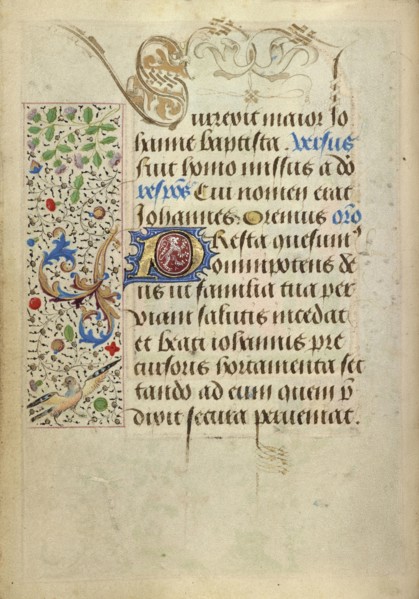 Surrexit maior Jo
hanne baptista. versus
fuit homo missus a do
respōs Cui nomen erat
Johannes. Oremus oro
PResta quesumꝰ
omnipotens de
us ut familia tua per
viam salutis incedat
et beati iohannis pre
cursoris hortamenta sec
tando ad eum quem p̄
dixit secura perueniat.